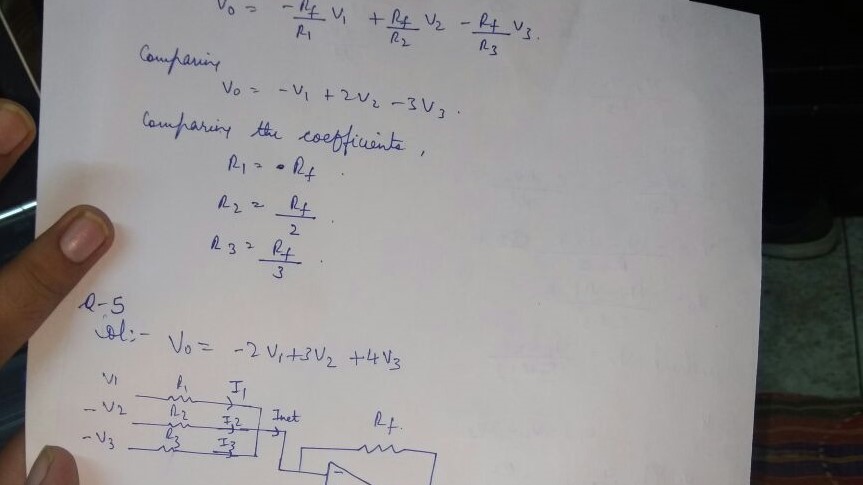 V₀ = -Rf/R₁ V₁ + Rf/R₂ V₂ - Rf/R₃ V₃.
Comparing
V₀ = -V₁ + 2V₂ - 3V₃.
Comparing the coefficients,
R₁ = Rf.
R₂ = Rf/2.
R₃ = Rf/3.
Q-5
Sol:- V₀ = -2V₁+3V₂+4V₃
V₁ R₁ I₁
-V₂ R₂ I₂ Inet Rf.
-V₃ R₃ I₃
-